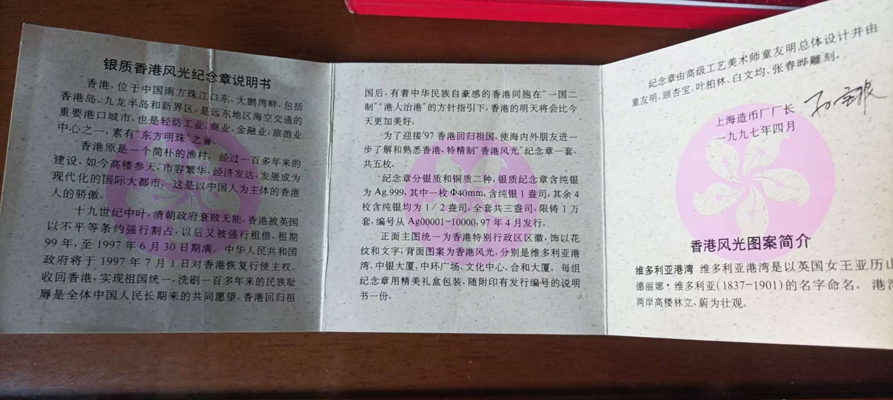 银质香港风光纪念章说明书
香港,位于中国南方珠江口东、大鹏湾畔,包括
香港岛、九龙半岛和新界区,是远东地区海空交通的
重要港口城市,也是轻纺工业、商业、金融业、旅游业
中心之一,素有“东方明珠”之誉。
香港原是一个简朴的渔村。经过一百多年来的
建设,如今高楼叁天,市容繁华,经济发达,发展成为
现代化的国际大都市。这是以中国人为主体的香港
人的骄傲。
十九世纪中叶,清朝政府衰败无能,香港被英国
以不平等条约强行割占,以后又被强行租借,租期
99年,至1997年6月30日期满。中华人民共和国
政府将于1997年7月1日对香港恢复行使主权。
收回香港,实现祖国统一,洗刷一百多年来的民族耻
辱是全体中国人民长期来的共同愿望,香港回归祖
国后,有着中华民族自豪感的香港同胞在“一国二
制”“港人治港”的方针指引下,香港的明天将会比今
天更加美好。
为了迎接’97香港回归祖国,使海内外朋友进一
步了解和熟悉香港,特精制“香港风光”纪念章一套,
共五枚。
纪念章分银质和铜质二种,银质纪念章含纯银
为Ag.999,其中一枚Φ40mm,含纯银1盎司,其余4
枚含纯银均为1/2盎司,全套共三盎司,限铸1万
套,编号从Ag00001-10000,97年4月发行。
正面主图统一为香港特别行政区区徽,饰以花
纹和文字;背面图案为香港风光,分别是维多利亚港
湾、中银大厦、中环广场、文化中心、合和大厦。每组
纪念章用精美礼盒包装,随附印有发行编号的说明
书一份。
纪念章由高级工艺美术师童友明总体设计并由
童友明、顾杏宝、叶柏林、白文均、张春晔雕刻。
上海造币厂厂长
一九九七年四月
香港风光图案简介
维多利亚港湾 维多利亚港湾是以英国女王亚历山
德丽娜·维多利亚(1837-1901)的名字命名。港湾
两岸高楼林立,蔚为壮观。